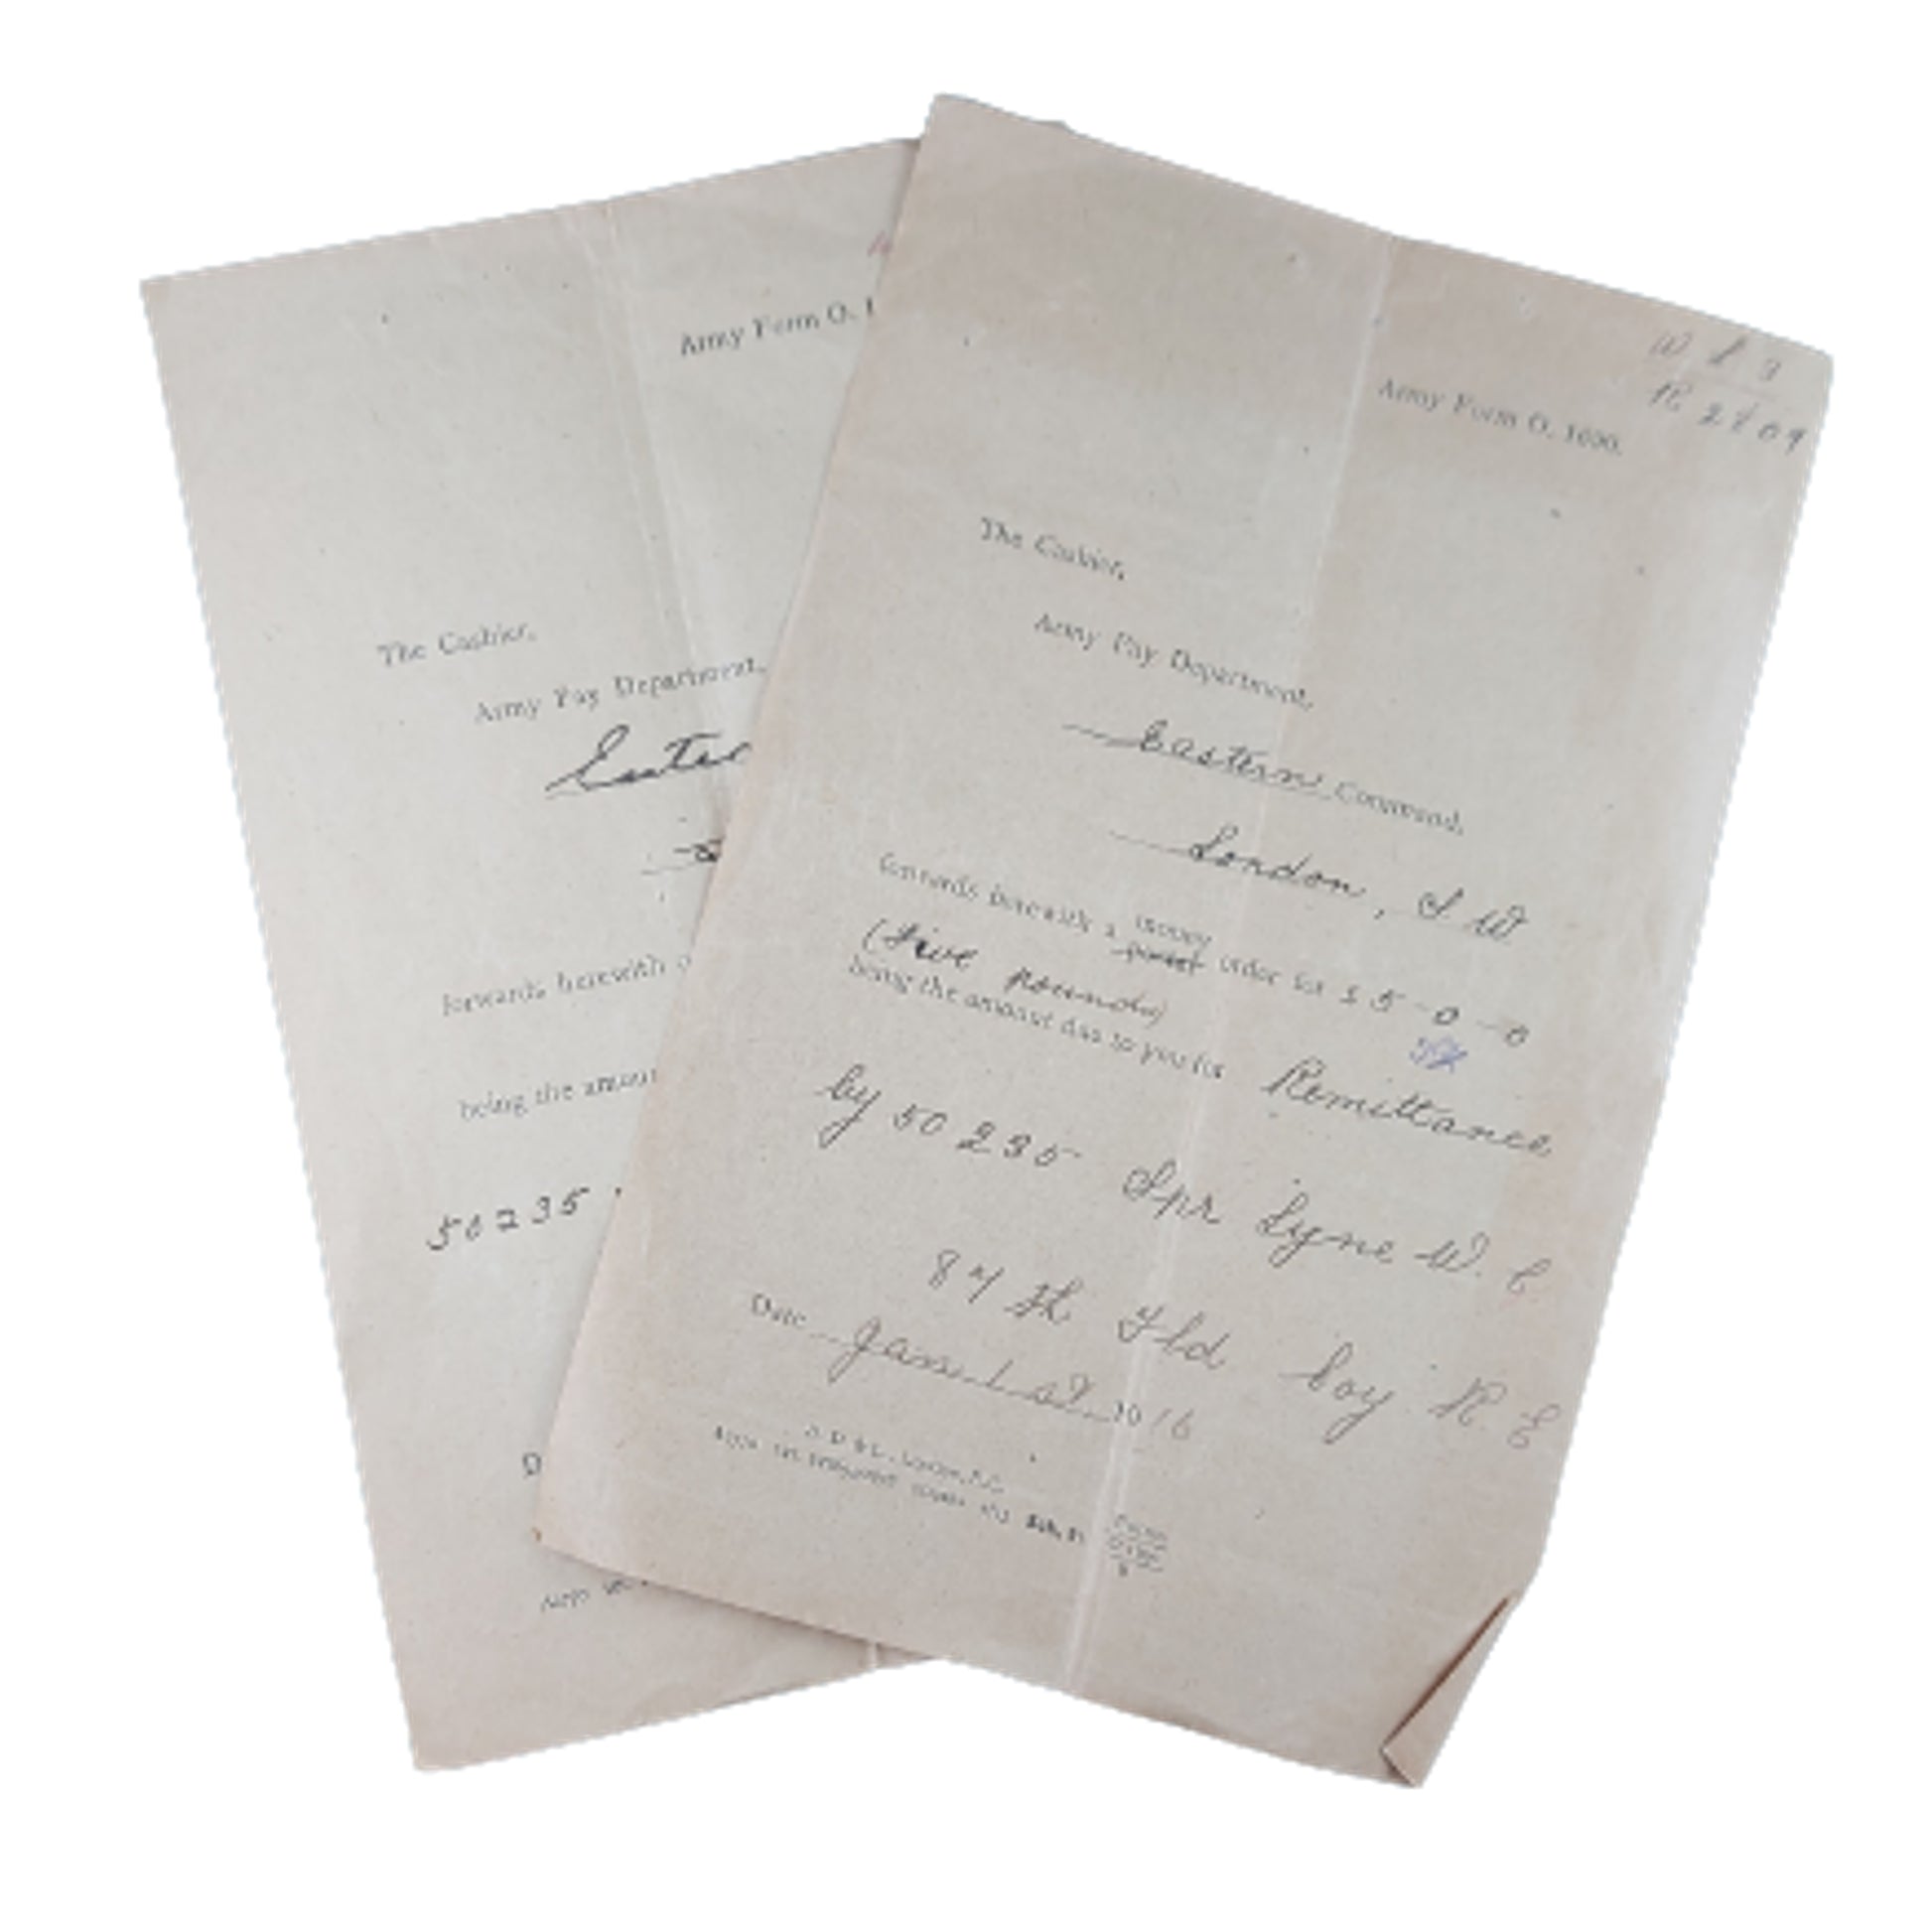 Army Form O. 1
The Cashier,
Army Pay Department,
forwards herewith
being the amount
50235
Army Form O. 1690.
The Cashier,
Army Pay Department,
Eastern Command,
London, S W
forwards herewith a money
postal order for £ 5-0-0
(Five pounds)
being the amount due to you for Remittance
by 50235 Spr Lyne W. C
87 th Fld Coy R. E
Date Jan 1st 1916